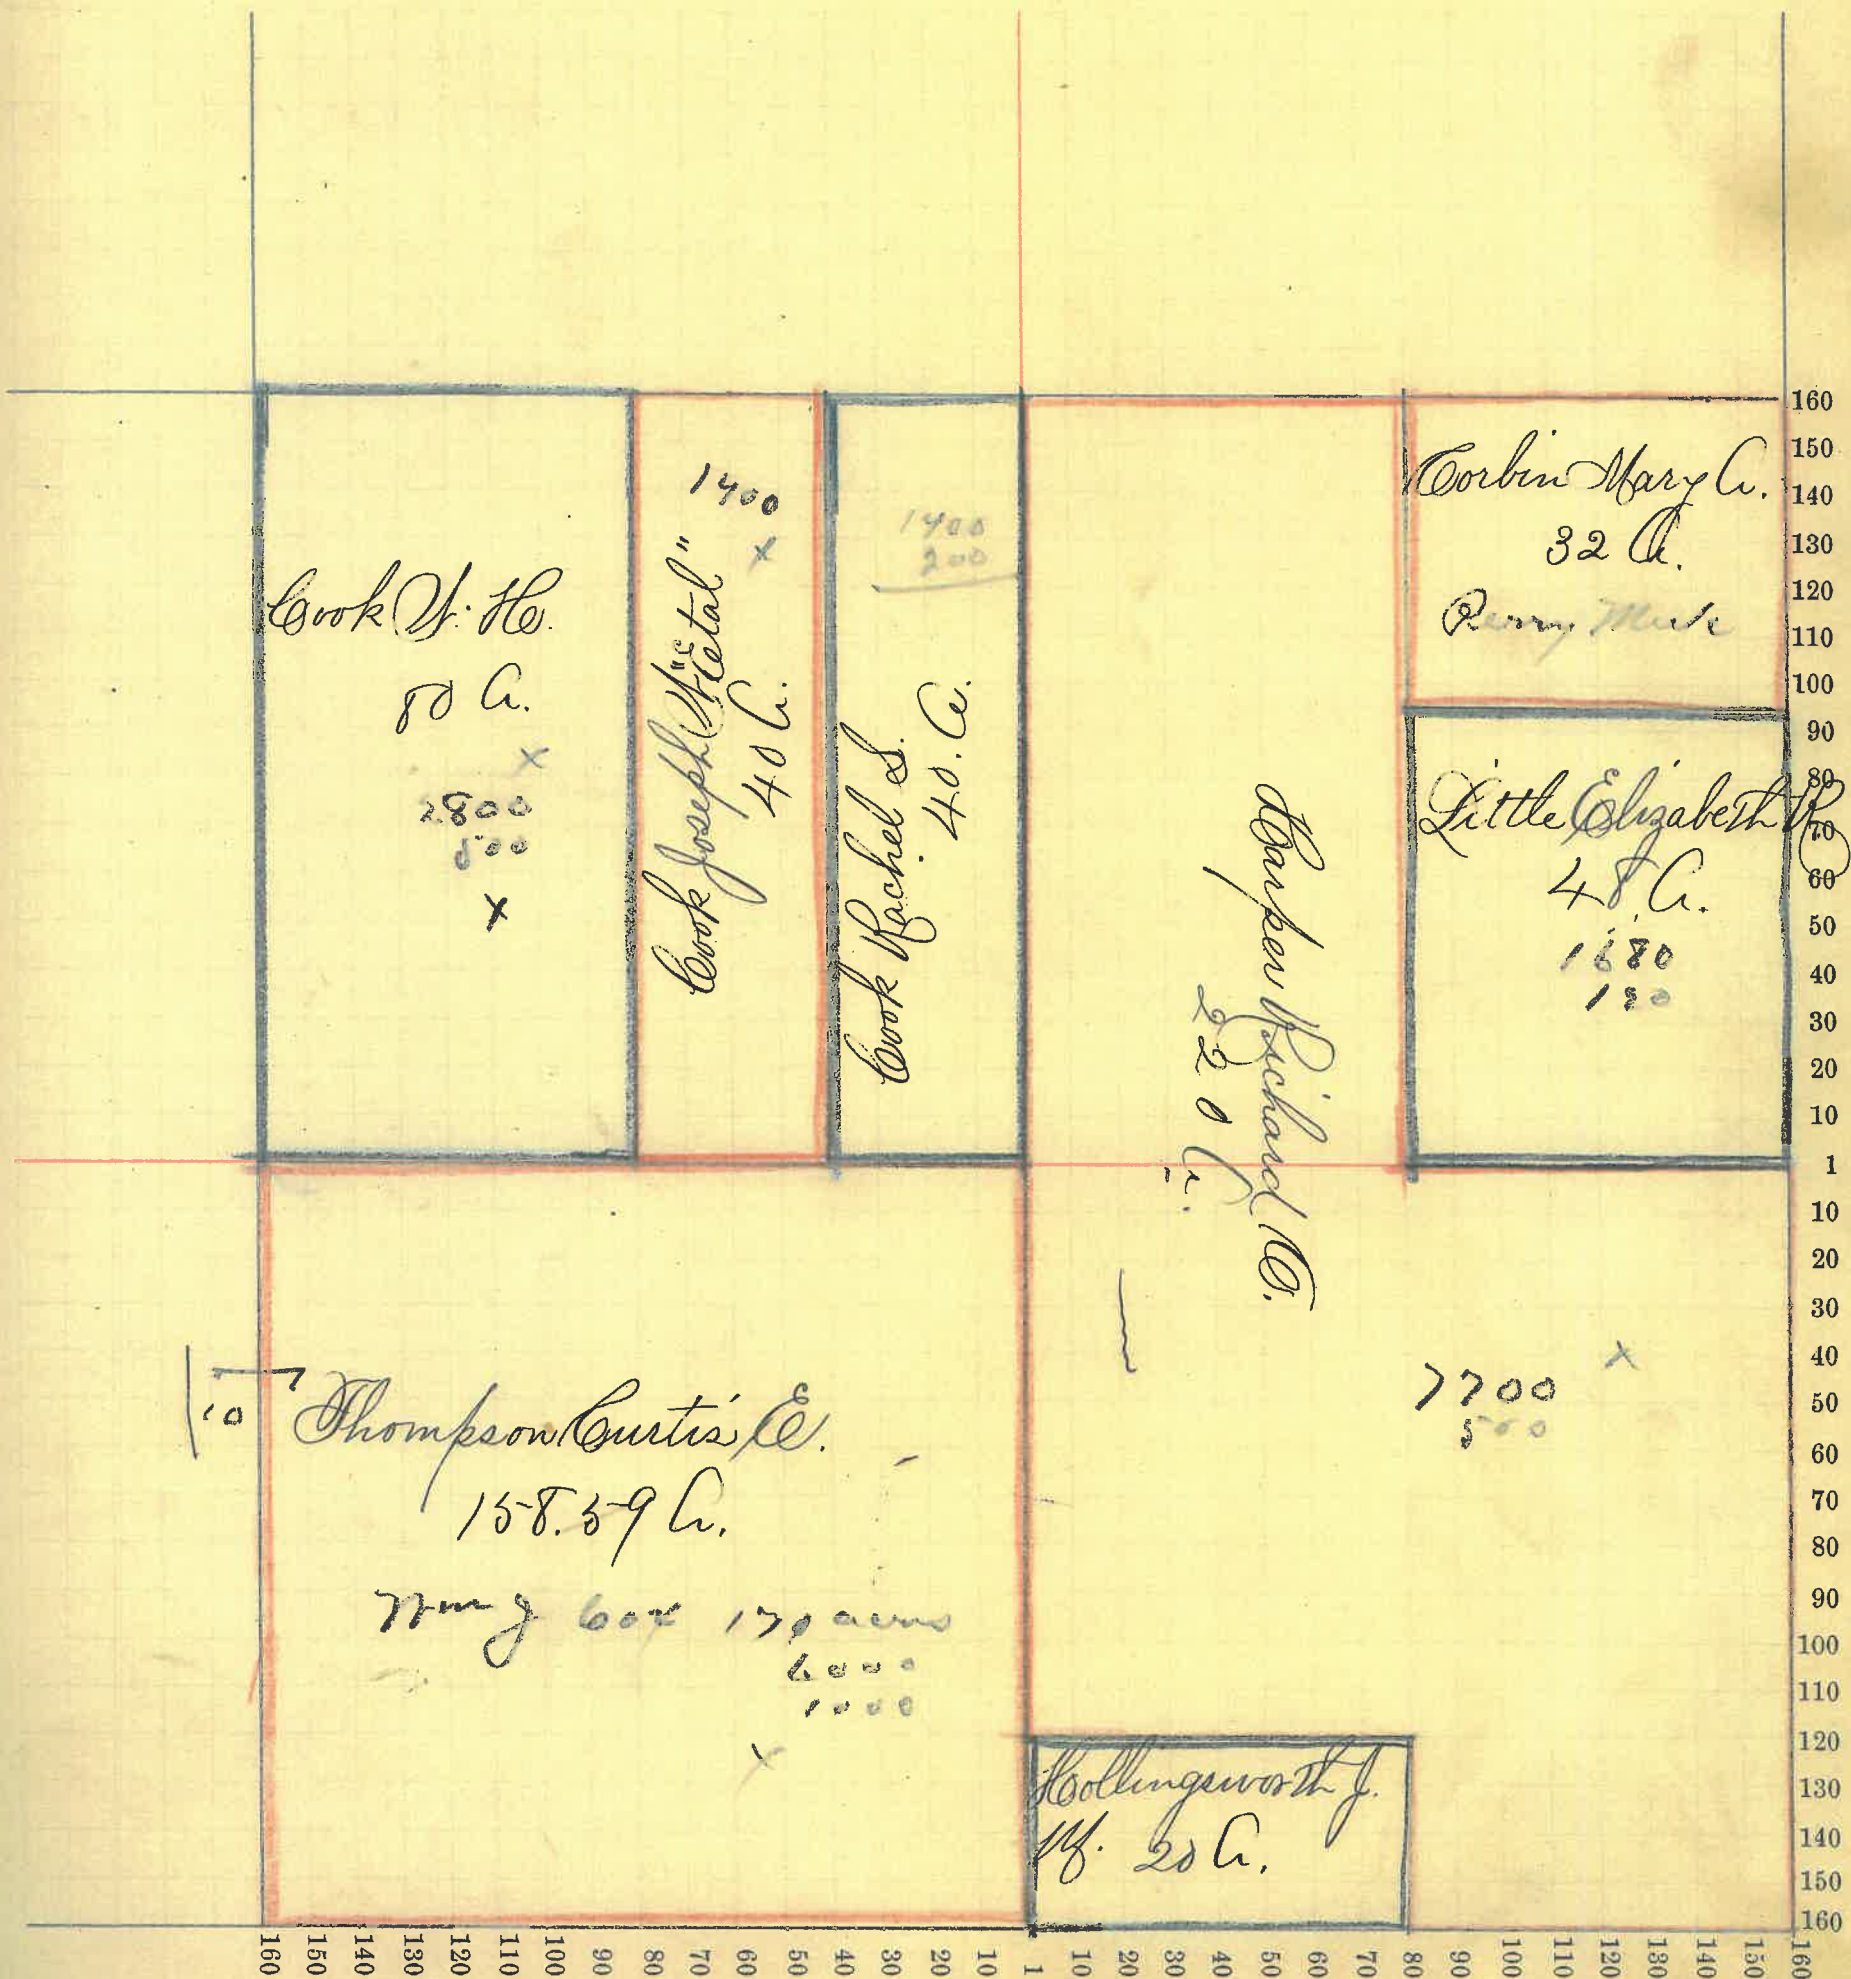 Cook W. H.
80 A.
x
2800
x
1400
x
Cook Joseph W. "et al"
40 A.
1400
200
Cook Rachel S.
40. A.
Harper Richard B.
220 A.
Corbin Mary A.
32 A.
Perry
Little Elizabeth R
48 A.
1680
7700 x
500
10
Thompson Curtis E.
158.59 A.
Wm J Cox 170 acres
6000
1000
x
Hollingsworth J.
M. 20 A.
160
150
140
130
120
110
100
90
80
70
60
50
40
30
20
10
1
10
20
30
40
50
60
70
80
90
100
110
120
130
140
150
160
160 150 140 130 120 110 100 90 80 70 60 50 40 30 20 10 1 10 20 30 40 50 60 70 80 90 100 110 120 130 140 150 160